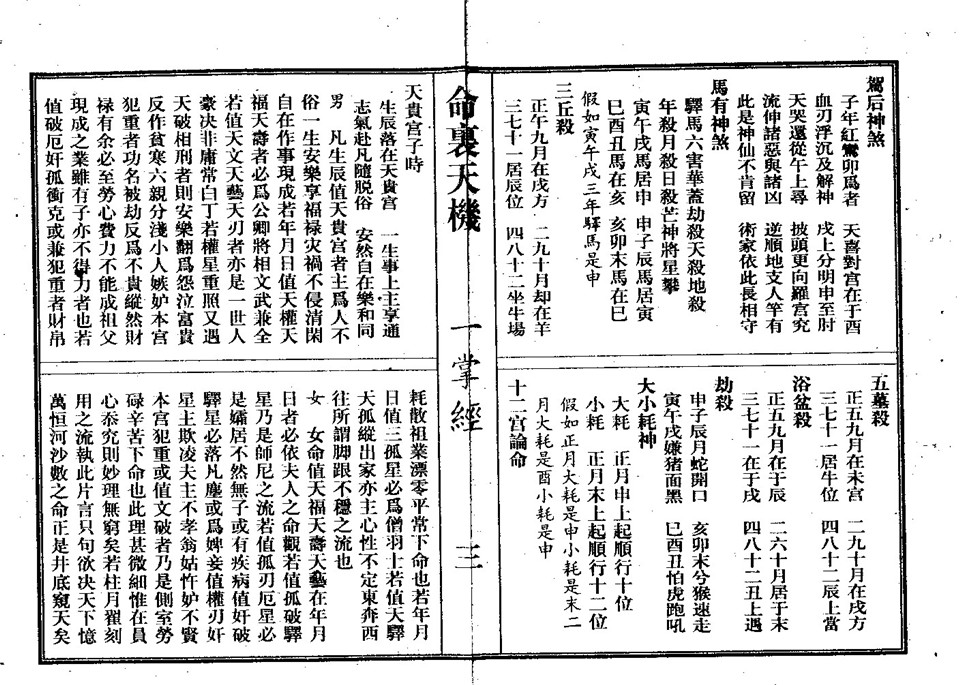 駕后神煞
子年紅鸞卯爲者　天喜對宮在于酉
血刃浮沉及解神　戌上分明申至肘
天哭還從午上尋　披頭更向羅宮究
流伸諸惡與諸凶　逆順地支人竿有
此是神仙不肯留　術家依此長相守
馬有神煞
驛馬六害華蓋劫殺天殺地殺
年殺月殺日殺芒神將星攀
寅午戌馬居申　申子辰馬居寅
巳酉丑馬在亥　亥卯末馬在巳
假如寅午戌三年驛馬是申
三丘殺
正午九月在戌方　二九十月却在羊
三七十一居辰位　四八十二坐牛場
五墓殺
正五九月在未宮　二九十月在戌方
三七十一居牛位　四八十二辰上當
浴盆殺
正五九月在于辰　二六十月居于末
三七十一在于戌　四八十二丑上過
劫殺
申子辰月蛇開口　亥卯末兮猴速走
寅午戌嫌猪面黑　巳酉丑怕虎跑吼
大小耗神
大耗　正月申上起順行十位
小耗　正月末上起順行十二位
假如正月大耗是申小耗是未二
月大耗是酉小耗是申
十二宮論命
命裏天機　一掌經　三
天貴宮子時
生辰落在天貴宮　一生事上主享通
志氣赴凡隨脱俗　安然自在樂和同
男　凡生辰值天貴宮者主爲人不
俗一生安樂享福禄灾禍不侵清閑
自在作事現成若年月日值天權天
福天壽者必爲公卿將相文武兼全
若值天文天藝天刃者亦是一世人
豪决非庸常白丁若權星重照又遇
天破相刑者則安樂翻爲怨泣富貴
反作貧寒六親分淺小人嫉妒本宮
犯重者功名被劫反爲不貴縱然財
禄有余必至勞心費力不能成祖父
現成之業雖有子亦不得力者也若
值破厄奸孤衝克或兼犯重者財帛
耗散祖業漂零平常下命也若年月
日值三孤星必爲僧羽士若值天驛
天孤縱出家亦主心性不定東奔西
往所謂脚跟不穩之流也
女　女命值天福天壽天藝在年月
日者必依夫人之命觀若值孤破驛
星乃是師尼之流若值孤刃厄星必
是孀居不然無子或有疾病值奸破
驛星必落凡塵或爲婢妾值權刃奸
星主欺凌夫主不孝翁姑忤妒不賢
本宮犯重或值文破者乃是側室勞
碌辛苦下命也此理甚微細惟在員
心忝究則妙理無窮矣若柱月翟刻
用之流執此片言只句欲决天下憶
萬恒河沙數之命正是井底窺天矣